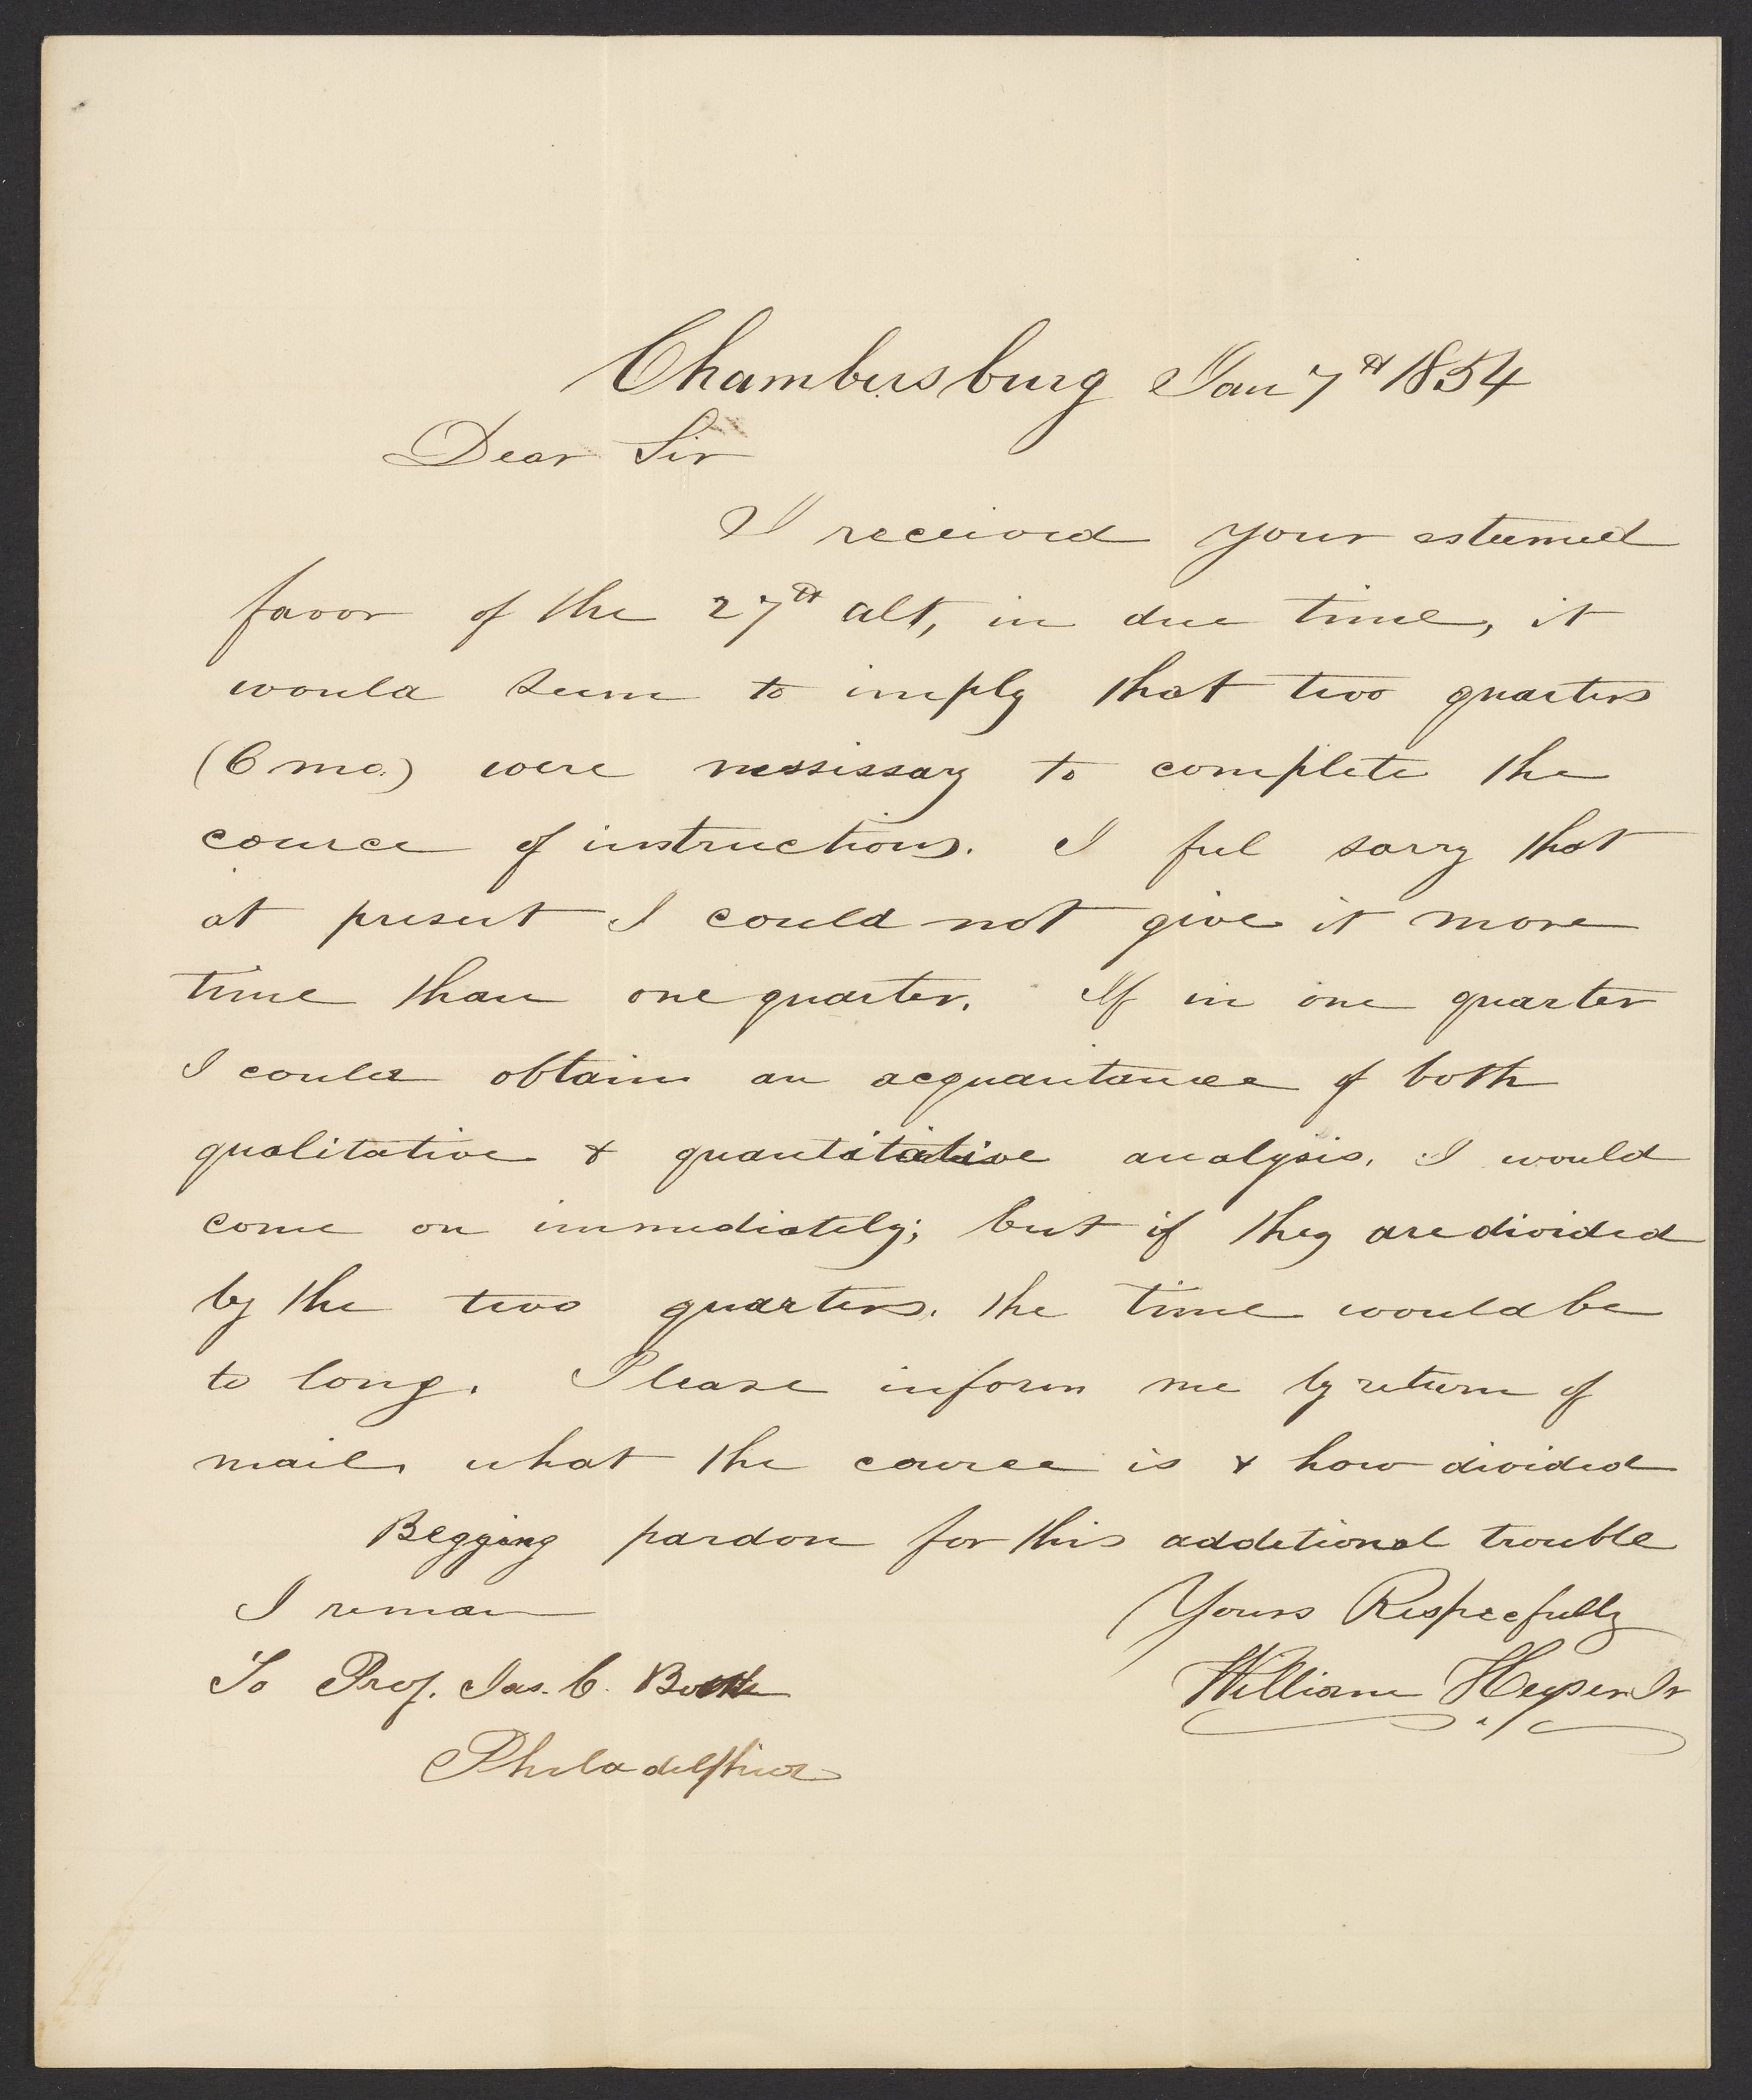 Chambersburg Jan 7th 1854
Dear Sir
I received your esteemed
favor of the 27th alt, in due time, it
would seem to imply that two quarters
(6 mo.) were nessissary to complete the
cource of instructions. I feel sorry that
at present I could not give it more
time than one quarter. If in one quarter
I could obtain an acquaintance of both
qualitative & quantitative analysis, I would
come on immediately; but if they are divided
by the two quarters, the time would be
to long. Please inform me by return of
mail, what the cource is & how divided
Begging pardon for this additional trouble
I remain Yours Respecfully
To Prof. Jas. C. Booth William Heyser Jr
Philadelphia